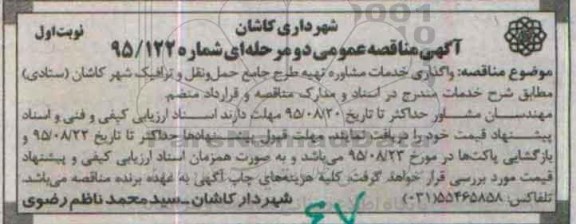 شهرداری کاشان
نوبت اول
آگهی مناقصه عمومی دو مرحله‌ای شماره ۹۵/۱۲۲
موضوع مناقصه: واگذاری خدمات مشاوره تهیه طرح جامع حمل‌ونقل و ترافیک شهر کاشان (ستادی)
مطابق شرح خدمات مندرج در اسناد و مدارک مناقصه و قرارداد منضم.
مهندسان مشاور حداکثر تا تاریخ ۹۵/۰۸/۲۰ مهلت دارند اسناد ارزیابی کیفی و فنی و اسناد
پیشنهاد قیمت خود را دریافت نمایند. مهلت قبول پیشنهادها حداکثر تا تاریخ ۹۵/۰۸/۲۲ و
بازگشایی پاکت‌ها در مورخ ۹۵/۰۸/۲۳ می‌باشد و به صورت همزمان اسناد ارزیابی کیفی و پیشنهاد
قیمت مورد بررسی قرار خواهد گرفت. کلیه هزینه‌های چاپ آگهی به عهده برنده مناقصه می‌باشد.
تلفاکس: ۵۵۴۶۵۸۵۸(۰۳۱)
شهردار کاشان ـ سیدمحمد ناظم رضوی
۶۷